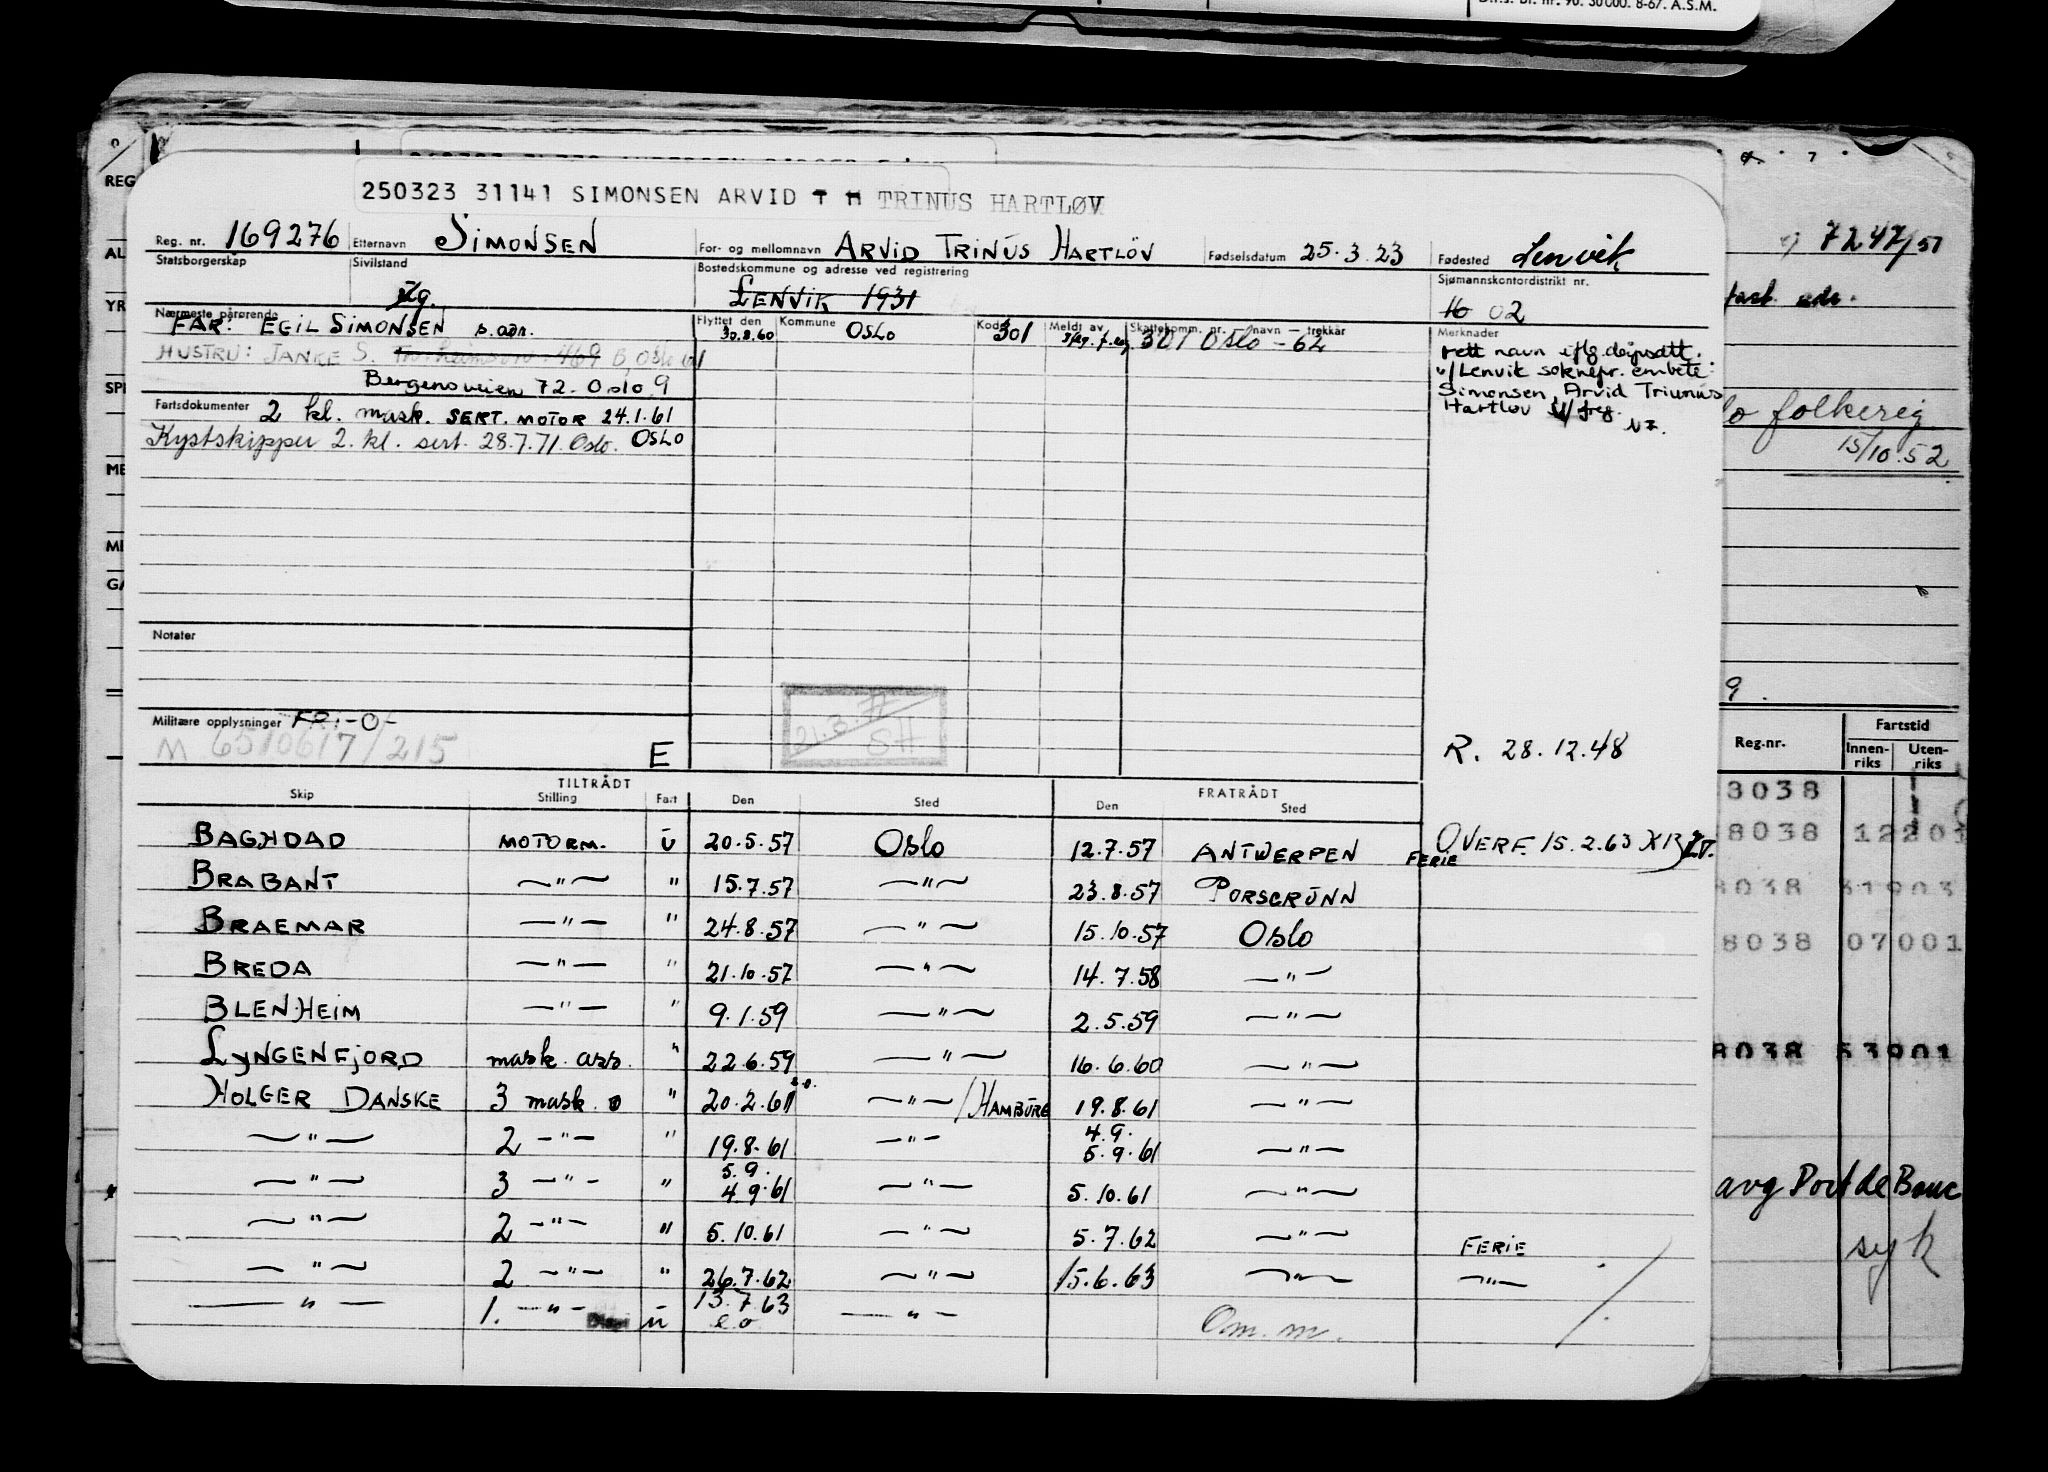 D.f.s. bl. nr. 90. 30 000. 8-67. A.S.M.
250323 31141 SIMONSEN ARVID T H TRINUS HARTLØV
Reg. nr. 169276 Etternavn SIMONSEN For- og mellomnavn ARVID TRINUS HARTLÖV Fødselsdatum 25.3.23 Fødested Lenvik
Statsborgerskap Sivilstand Ug. Bostedskommune og adresse ved registrering LENVIK 1931 Sjømannskontordistrikt nr. 16 02
Nærmeste pårørende Flyttet den Kommune Kode Meldt av Skattekomm. nr. / navn — trekkår Merknader
FAR: EGIL SIMONSEN s. adr. 30.8.60 OSLO 301 301 Oslo - 62
HUSTRU: JANKE S. 469 B, Oslo
Bergensveien 72. Oslo 9
rett navn iflg. dåpsatt.
v/Lenvik soknepr. embete:
Simonsen, Arvid Triunus
Hartløv
Fartsdokumenter 2 kl. mask. SERT. MOTOR 24.1.61
Kystskipper 2. kl. sert. 28.7.71. Oslo. OSLO
Notater
Militære opplysninger FR: -0-
M 6510617/215 E
21.3.77
SH
R. 28.12.48
TILTRÅDT FRATRÅDT
Skip Stilling Fart Den Sted Den Sted
BAGHDAD MOTORM. u 20.5.57 Oslo 12.7.57 ANTWERPEN FERIE OVERF. 15.2.63
BRABANT —"— " 15.7.57 —"— 23.8.57 PORSGRUNN
BRAEMAR —"— " 24.8.57 —"— 15.10.57 Oslo
BREDA —"— " 21.10.57 —"— 14.7.58 —"—
BLENHEIM —"— " 9.1.59 —"— 2.5.59 —"—
LYNGENFJORD mask. ass. " 22.6.59 —"— 16.6.60 —"—
HOLGER DANSKE 3 mask. o " 20.2.61 e.o. —"— /HAMBURG 19.8.61 —"—
—"— 2 —"— " 19.8.61 —"— 4.9. 5.9.61 —"—
—"— 3 —"— " 5.9. 4.9.61 —"— 5.10.61 —"—
—"— 2 —"— " 5.10.61 —"— 5.7.62 —"— FERIE
—"— 2 —"— " 26.7.62 —"— 15.6.63 —"— —"—
—"— 1. —"— u 13.7.63 e.o —"— Om. m.
REG
AL
YR
SP
ME
MI
GA
7247/51
fast adr.
folkereg
15/10.52
9.
Fartstid
Reg.nr. Innen-riks Uten-riks
3038
8038 12203
8038 31903
8038 07001
8038 53901
avg Port de Bouc
syk